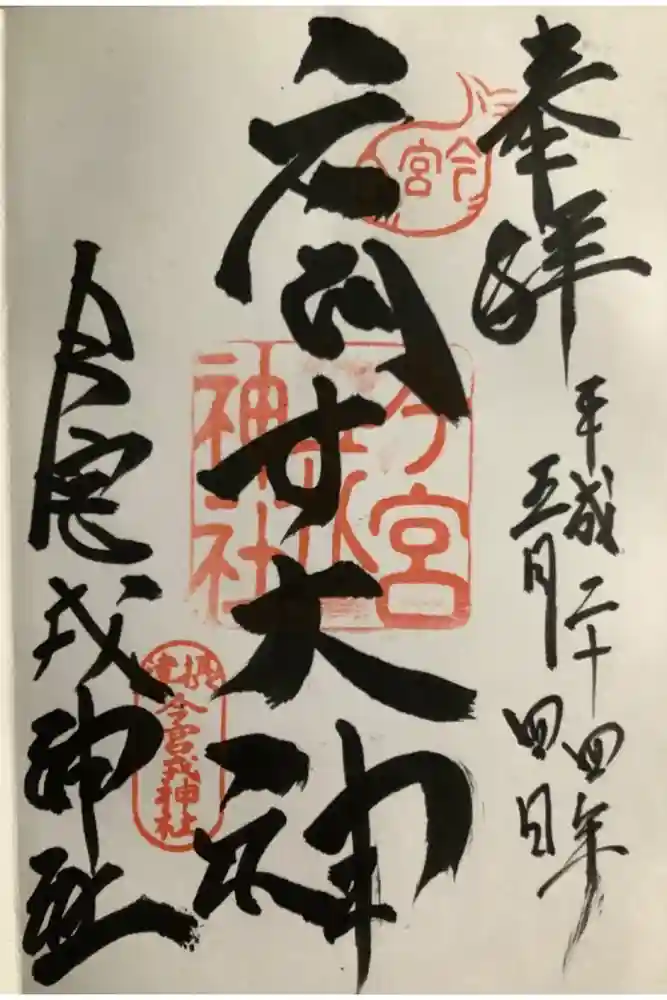 奉拝
平成二十四年
五月四日
今宮
大神
今宮戎神社
今宮戎神社
摂津
今宮戎神社